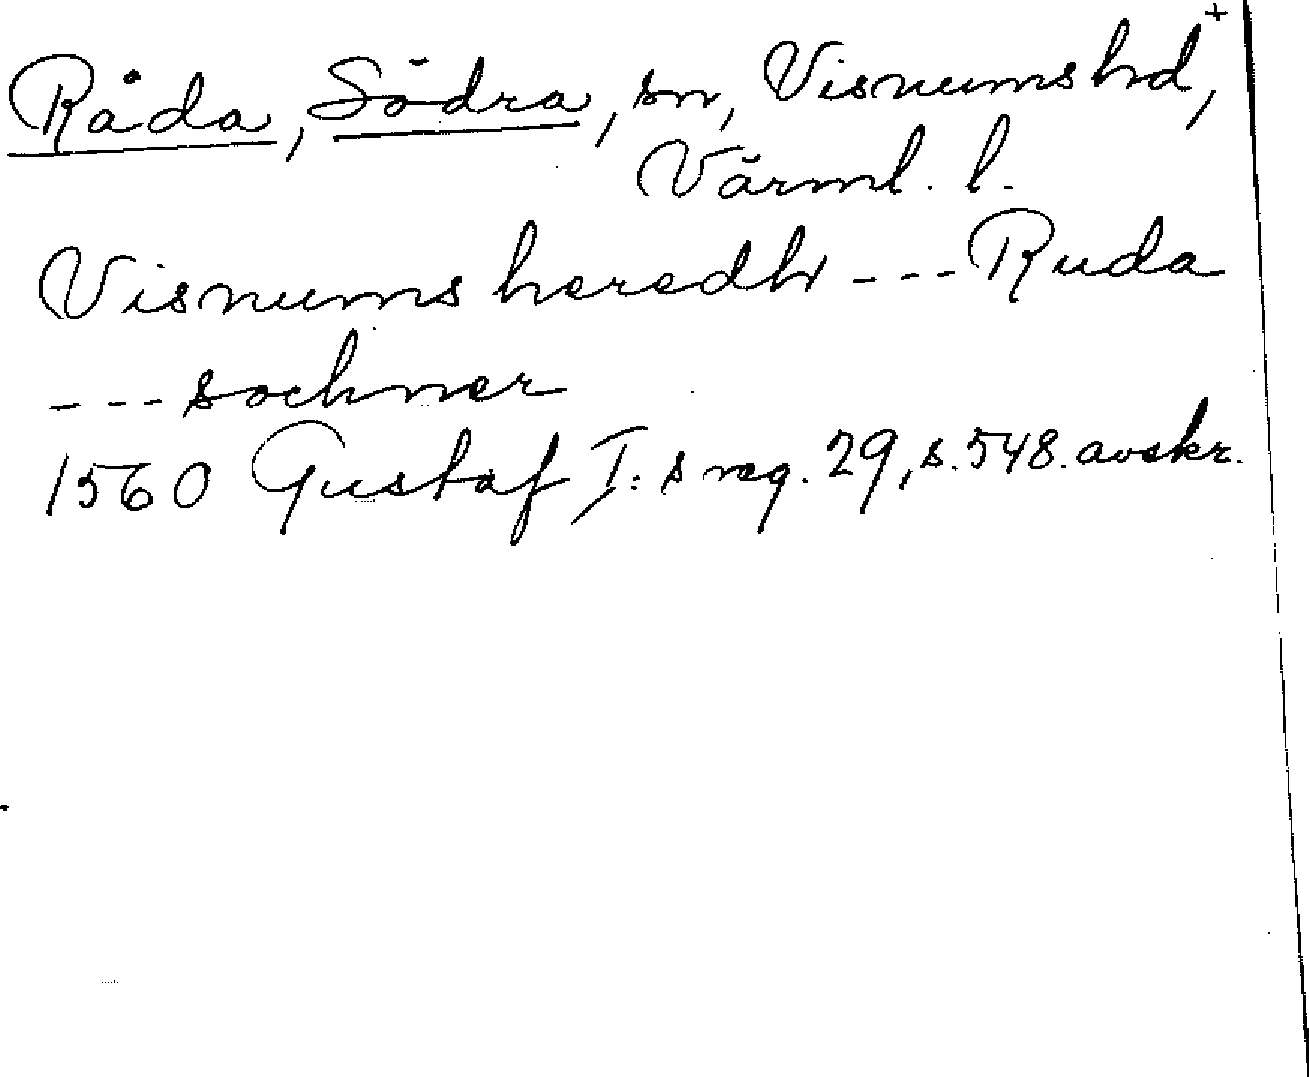 Råda, Södra, sn, Visnums hd, +
Värml. l.
Visnums heredh --- Ruda
--- sochner
1560 Gustaf I:s reg. 29, s. 548. avskr.